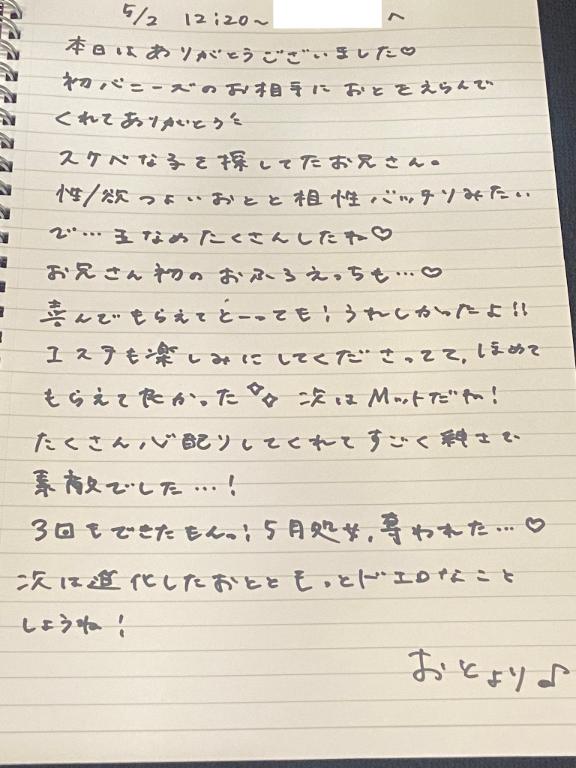 5/2 12:20~ へ
本日はありがとうございました♡
初バニーズのお相手におとをえらんで
くれてありがとう
スケベな子を探してたお兄さん。
性/欲つよいおとと相性バッチリみたい
で…玉なめたくさんしたね♡
お兄さん初のおふろえっちも…♡
喜んでもらえてとーっても!うれしかったよ!!
エステも楽しみにしてくださってて,ほめて
もらえて 次はMットだね!
たくさん心配りしてくれてすごく紳士で
素敵でした…!
3回もできたもんっ!5月処女,奪われた…♡
次は進化したおとともっとドエロなこと
しようね!
おとより♪